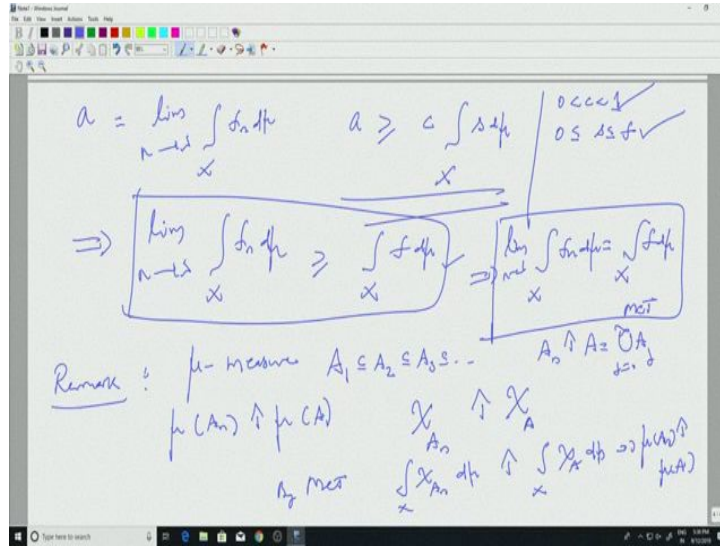 Note1 - Windows Journal
File Edit View Insert Actions Tools Help
a = lim n→∞ ∫_X f_n dμ   a ≥ c ∫_X s dμ   0<c<1 ✓
0 ≤ s ≤ f ✓
⇒ lim n→∞ ∫_X f_n dμ ≥ ∫_X f dμ ✓ ⇒ lim n→∞ ∫_X f_n dμ = ∫_X f dμ
MCT
Remark : μ- measure A_1 ⊆ A_2 ⊆ A_3 ⊆ ... A_n ↑ A = ∪ A_j
μ(A_n) ↑ μ(A)   χ_{A_n} ↑ χ_A
By MCT ∫_X χ_{A_n} dμ ↑ ∫_X χ_A dμ ⇒ μ(A_n) ↑ μ(A)
Type here to search